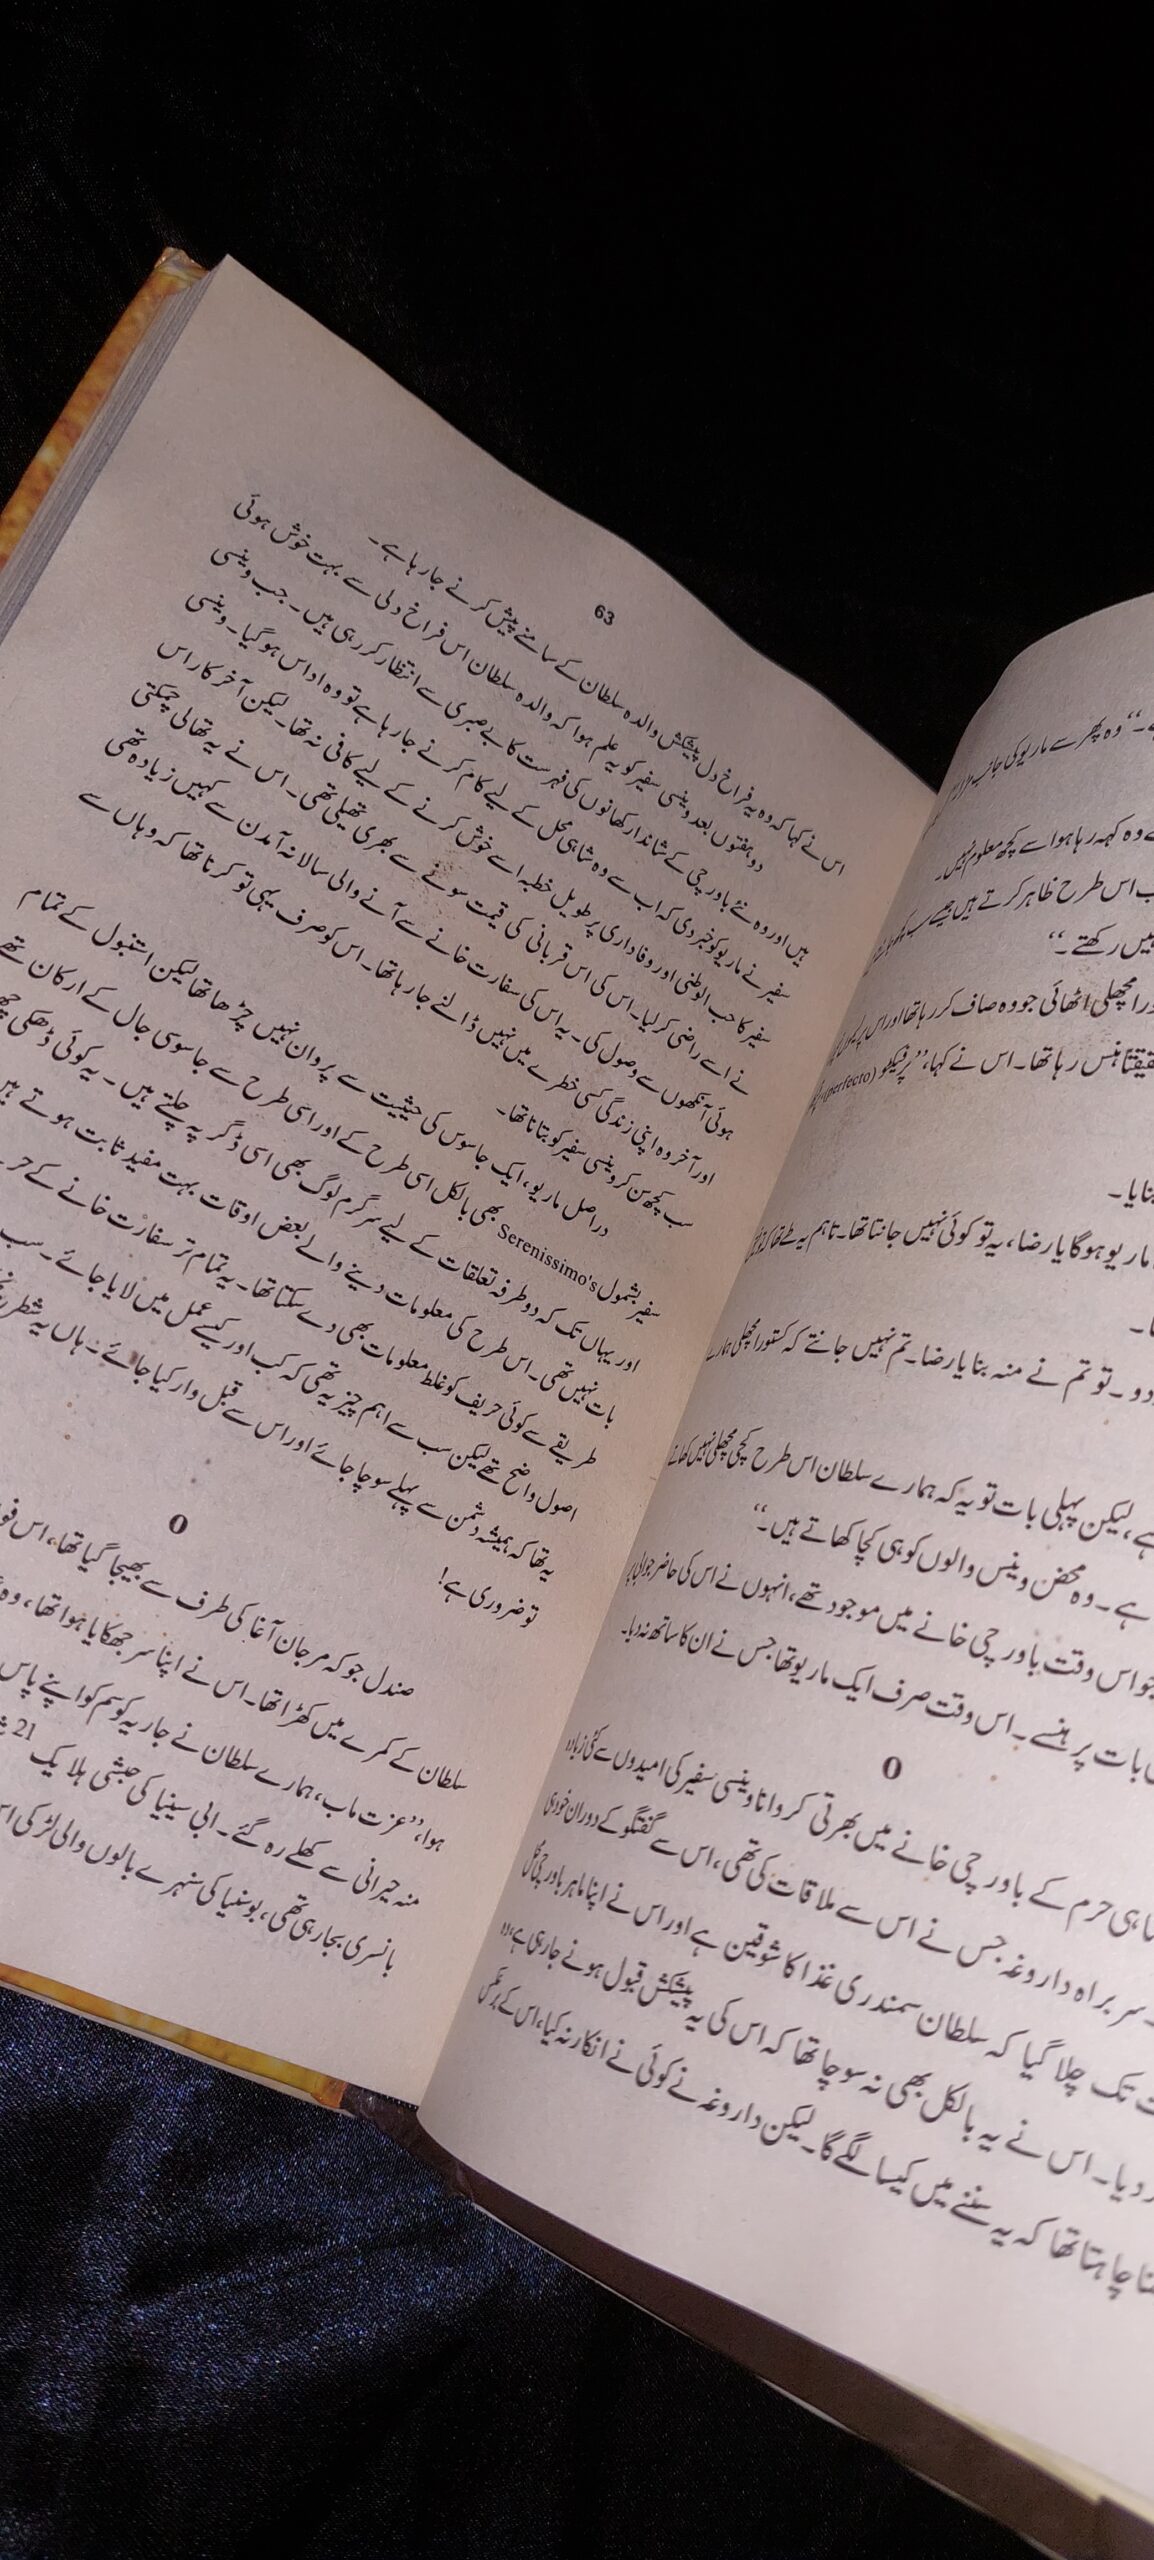 63
اس نے کہا کہ وہ یہ فراخ دل پیشکش والدہ سلطان کے سامنے پیش کرنے جا رہا ہے۔
دو ہفتوں بعد وینسی سفیر کو یہ علم ہوا کہ والدہ سلطان اس فراخ دلی سے بہت خوش ہوئی
ہیں اور وہ نئے باورچی کے شاندار کھانوں کی فہرست کا بے صبری سے انتظار کر رہی ہیں۔ جب وینسی
سفیر نے ماریو کو خبر دی کہ اب سے وہ شاہی محل کے لیے کام کرنے جا رہا ہے تو وہ اداس ہو گیا۔ وینسی
سفیر کا حب الوطنی اور وفاداری پر طویل خطبہ اسے خوش کرنے کے لیے کافی نہ تھا۔ لیکن آخر کار اس
نے اسے راضی کر لیا۔ اس کی اس قربانی کی قیمت سونے سے بھری تھیلی تھی۔ اس نے یہ تھالی چمکتی
ہوئی آنکھوں سے وصول کی۔ یہ اس کی سفارت خانے سے آنے والی سالانہ آمدن سے کہیں زیادہ تھی
اور آخر وہ اپنی زندگی کسی خطرے میں نہیں ڈالنے جا رہا تھا۔ اس کو صرف یہی تو کرنا تھا کہ وہاں سے
سب کچھ سن کر وینسی سفیر کو بتانا تھا۔
دراصل ماریو، ایک جاسوس کی حیثیت سے پروان نہیں چڑھا تھا لیکن استنبول کے تمام
سفیر بشمول Serenissimo's بھی بالکل اسی طرح کے اور اسی طرح سے جاسوسی جال کے ارکان تھے
اور یہاں تک کہ دو طرفہ تعلقات کے لیے سرگرم لوگ بھی اسی ڈگر پہ چلتے ہیں۔ یہ کوئی ڈھکی
بات نہیں تھی۔ اس طرح کی معلومات دینے والے بعض اوقات بہت مفید ثابت ہوتے ہیں
طریقے سے کوئی حریف کو غلط معلومات بھی دے سکتا تھا۔ یہ تمام تر سفارت خانے کے
اصول واضح تھے لیکن سب سے اہم چیز یہ تھی کہ کب اور کیسے عمل میں لایا جائے۔ سب
یہ تھا کہ ہمیشہ دشمن سے پہلے سوچا جائے اور اس سے قبل وار کیا جائے۔ ہاں یہ
تو ضروری ہے!
صندل جو کہ مرجان آغا کی طرف سے بھیجا گیا تھا، اس
سلطان کے کمرے میں کھڑا تھا۔ اس نے اپنا سر جھکایا ہوا تھا، وہ
ہوا، ”عزت ماب، ہمارے سلطان نے جاریہ کوسم کو اپنے پاس
منہ حیرانی سے کھلے رہ گئے۔ ابی سینیا کی حبشی ہلا یک 21
بانسری بجا رہی تھی، بوسنیا کی سنہرے بالوں والی لڑکی
وہ پھر سے ماریو کی جانب
وہ کہہ رہا ہوا سے کچھ معلوم نہیں۔
اس طرح ظاہر کرتے ہیں جیسے سب کچھ
نہیں رکھتے۔“
مچھلی اٹھائی جو وہ صاف کر رہا تھا اور اس
ہنس رہا تھا۔ اس نے کہا، ”پرفیکٹو (perfecto)
بنایا۔
ماریو ہوگا یا رضا، یہ تو کوئی نہیں جانتا تھا۔ تاہم یہ طے تھا کہ
دو۔ تو تم نے منہ بنایا رضا۔ تم نہیں جانتے کہ کستورا مچھلی ہمارے
ہے، لیکن پہلی بات تو یہ کہ ہمارے سلطان اس طرح کچی مچھلی نہیں کھاتے
ہے۔ وہ محض وینس والوں کو ہی کچا کھاتے ہیں۔“
جو اس وقت باورچی خانے میں موجود تھے، انہوں نے اس کی حاضر جوابی پر
بات پر ہنسے۔ اس وقت صرف ایک ماریو تھا جس نے ان کا ساتھ نہ دیا۔
شاہی حرم کے باورچی خانے میں بھرتی کروانا وینسی سفیر کی امیدوں سے کئی زیادہ
سربراہ داروغہ جس نے اس سے ملاقات کی تھی، اس سے گفتگو کے دوران خود ہی
تک چلا گیا کہ سلطان سمندری غذا کا شوقین ہے اور اس نے اپنا ماہر باورچی محل
دیا۔ اس نے یہ بالکل بھی نہ سوچا تھا کہ اس کی یہ پیشکش قبول ہونے جا رہی ہے، وہ
چاہتا تھا کہ یہ سننے میں کیسا لگے گا۔ لیکن داروغہ نے کوئی نے انکار نہ کیا، اس کے برعکس